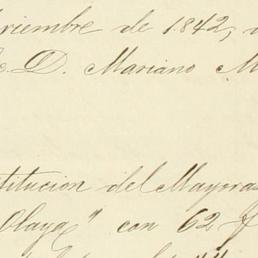 viembre de 1842,
D. Mariano M
titucion del Mayoraz
Olaya" con 62 f